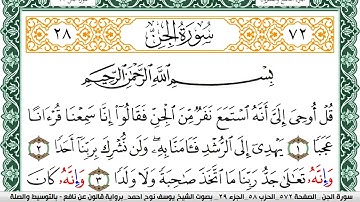 ٧٢ سُورَةُ الجِنِّ ٢٨
بِسْمِ اللَّهِ الرَّحْمَٰنِ الرَّحِيمِ
قُلْ أُوحِىَ إِلَىَّ أَنَّهُ ٱسْتَمَعَ نَفَرٌ مِّنَ ٱلْجِنِّ فَقَالُوٓاْ إِنَّا سَمِعْنَا قُرْءَانًا
عَجَبًا ١ يَهْدِىٓ إِلَى ٱلرُّشْدِ فَـَٔامَنَّا بِهِۦ وَلَن نُّشْرِكَ بِرَبِّنَآ أَحَدًا ٢
وَإِنَّهُۥ تَعَٰلَىٰ جَدُّ رَبِّنَا مَا ٱتَّخَذَ صَٰحِبَةً وَلَا وَلَدًا ٣ وَإِنَّهُۥ كَانَ
سورة الجن . الصفحة ٥٧٢ الحزب ٥٨ الجزء ٢٩ . بصوت الشيخ يوسف نوح احمد . برواية قالون عن نافع - بالتوسيط والصلة